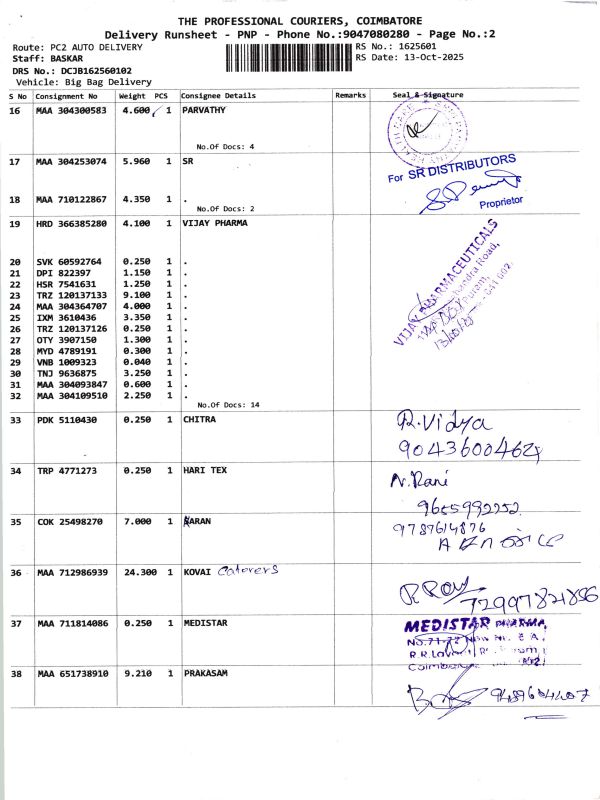 THE PROFESSIONAL COURIERS, COIMBATORE
Delivery Runsheet - PNP - Phone No.:9047080280 - Page No.:2
Route: PC2 AUTO DELIVERY RS No.: 1625601
Staff: BASKAR RS Date: 13-Oct-2025
DRS No.: DCJB162560102
Vehicle: Big Bag Delivery
S No Consignment No Weight PCS Consignee Details Remarks Seal & Signature
16 MAA 304300583 4.600 1 PARVATHY
No.Of Docs: 4
17 MAA 304253074 5.960 1 SR
For SR DISTRIBUTORS
18 MAA 710122867 4.350 1 .
Proprietor
No.Of Docs: 2
19 HRD 366385280 4.100 1 VIJAY PHARMA
VIJAY PHARMACEUTICALS
20 SVK 60592764 0.250 1 .
21 DPI 822397 1.150 1 .
22 HSR 7541631 1.250 1 .
23 TRZ 120137133 9.100 1 .
24 MAA 304364707 4.000 1 .
25 IXM 3610436 3.350 1 .
26 TRZ 120137126 0.250 1 .
27 OTY 3907150 1.300 1 .
28 MYD 4789191 0.300 1 .
29 VNB 1009323 0.040 1 .
30 TNJ 9636875 3.250 1 .
31 MAA 304093847 0.600 1 .
32 MAA 304109510 2.250 1 .
No.Of Docs: 14
33 PDK 5110430 0.250 1 CHITRA
R.Vidya
34 TRP 4771273 0.250 1 HARI TEX
N.Rani
9655992252
35 COK 25498270 7.000 1 KARAN
9787614876
36 MAA 712986939 24.300 1 KOVAI Caterers
37 MAA 711814086 0.250 1 MEDISTAR
MEDISTAR PHARMA,
38 MAA 651738910 9.210 1 PRAKASAM